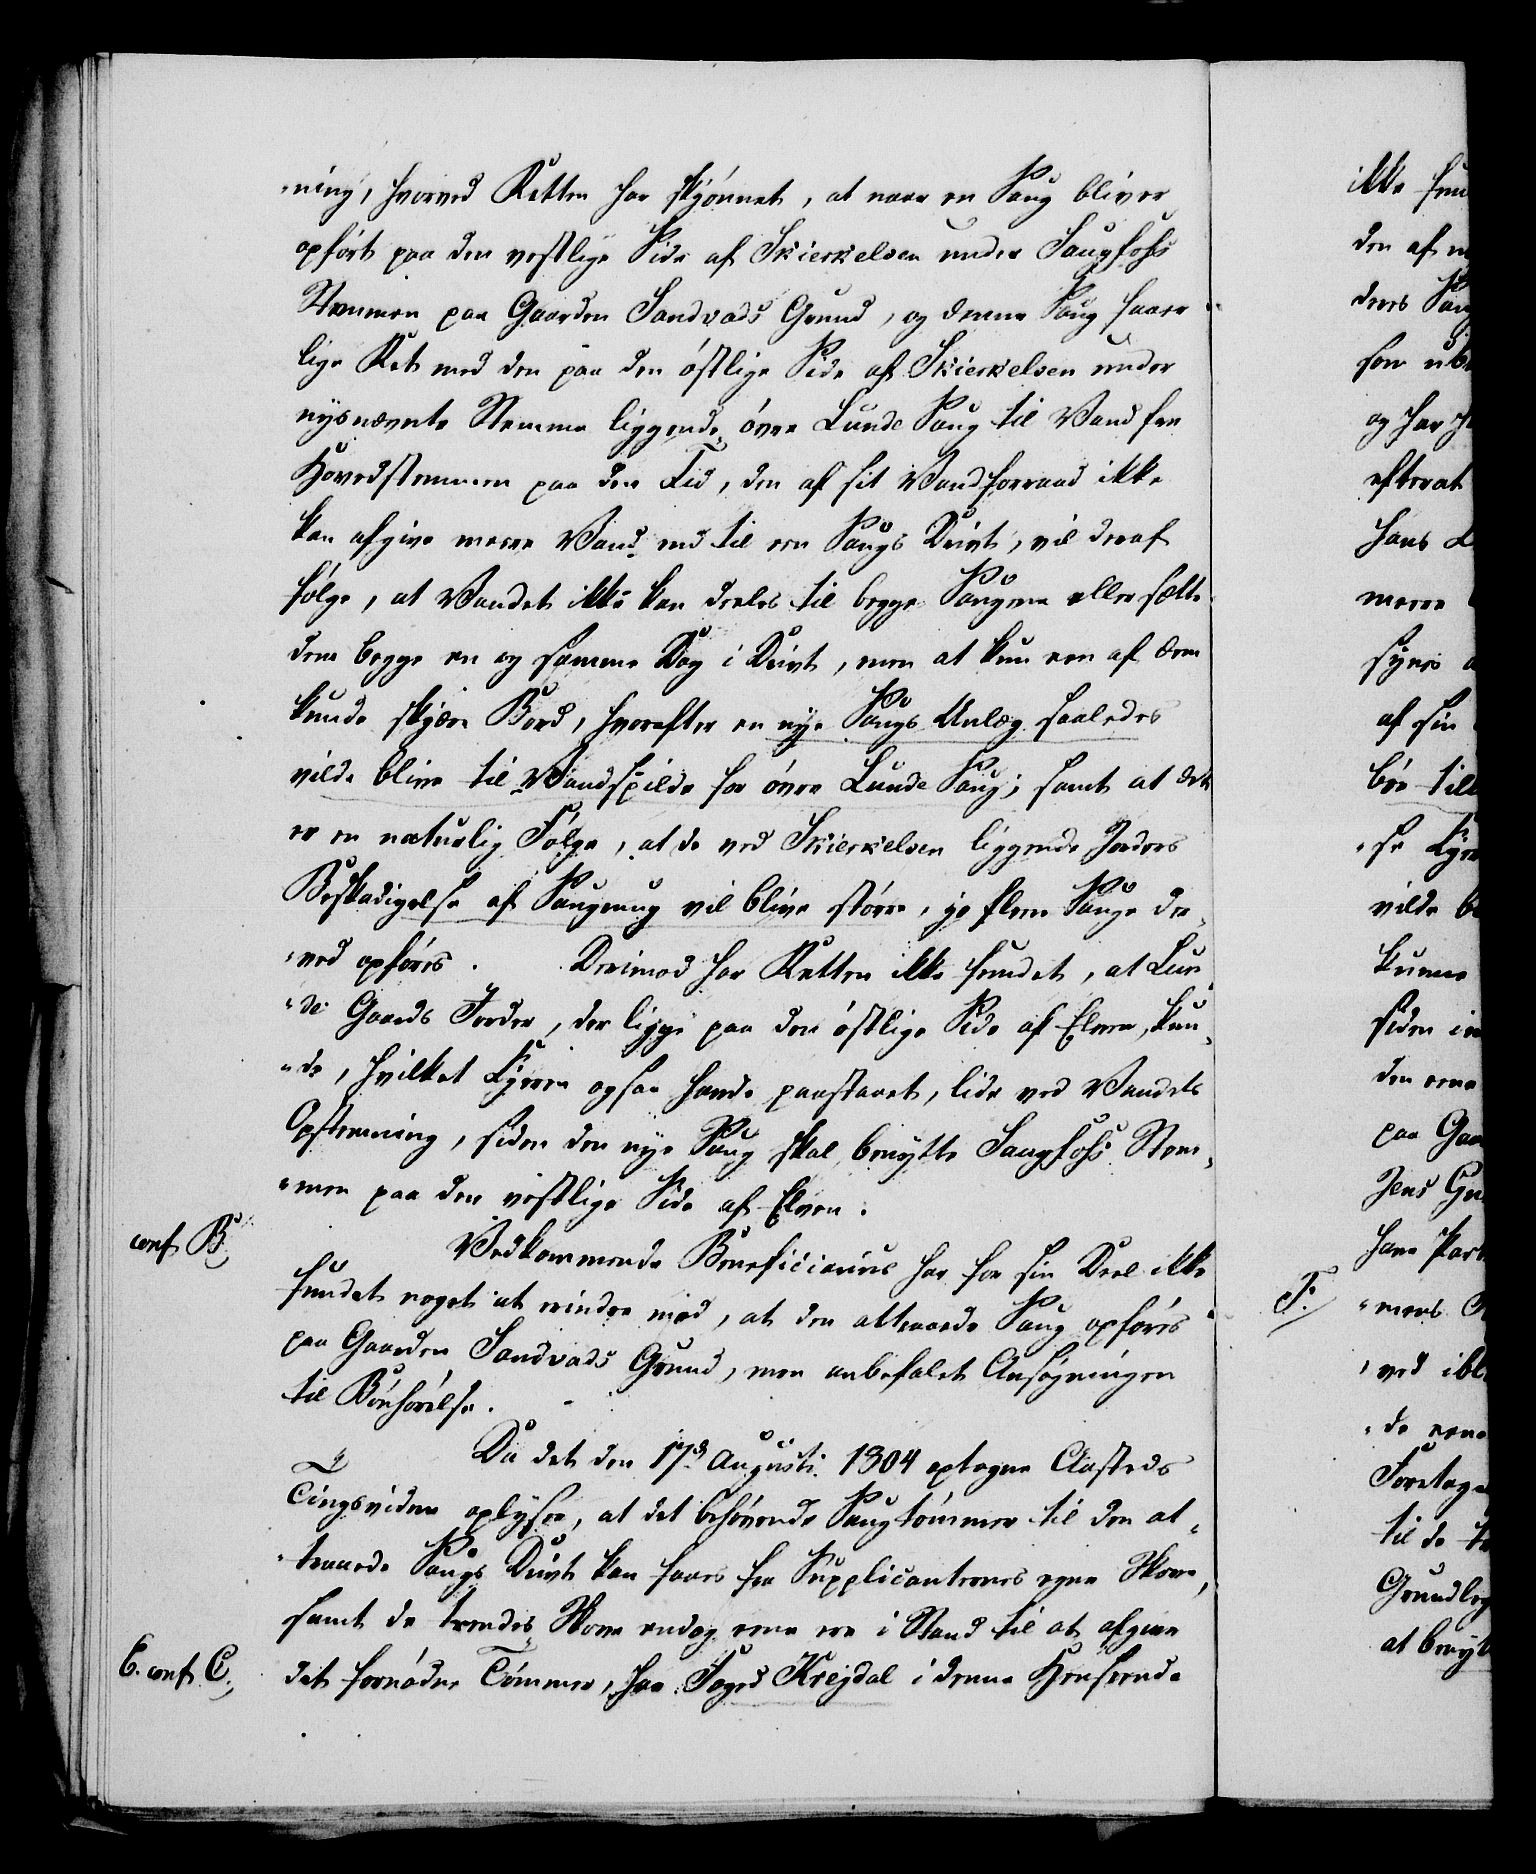 "ning, hvorved Retten har skjönnet, at naar en Saug bliver
opfört paa den vestlige Side af Skierkelven under Saugfoss
Stemmen paa Gaarden Sandvads Grund, og denne Saug faaer
lige Ret med den paa den östlige Side af Skierkelven under
nysnævnte Stemme liggende övre Lunde Saug til Vand fra
Hovedstemmen paa den Tid, den af sit Vandforraad ikke
kan afgive mere Vand end til een Saugs Drivt, vil deraf
fölge, at Vandet ikke kan deeles til begge Saugene eller sætte
dem begge en og samme Dag i Drivt, men at kun een af dem
kunde skjære Bord, hvorefter en nye Saugs Anlæg saaledes
vilde blive til Vandspilde for övre Lunde Saug; samt at det
er en naturlig Fölge, at de ved Skierkelven liggende Jorders
Beskadigelse af Saugmug vil blive större, jo flere Sauge der-
"ved opföres. Derimod har Retten ikke fundet, at Lun-
"de Gaards Jorder, der ligge paa den östlige Side af Elven, kun-
"de, hvilket Eyeren ogsaa havde paastaaet, lide ved Vandets
Opstemning, siden den nye Saug skal benytte Saugfoss Stem-
"men paa den vestlige Side af Elven.
conf. B.
Vedkommende Beneficiarius har for sin Deel ikke
fundet noget at erindre mod, at den attraaede Saug opföres
paa Gaarden Sandvads Grund, men anbefalet Ansögningen
til Bönhörelse.
Da det den 17de Augusti 1804 optagne Aasteds
Tingsvidne oplyser, at det behövende Saugtömmer til den at-
"traaede Saugs Drivt kan faaes fra Supplicanternes egne Skove,
samt de trendes Skove endog ene ere i Stand til at afgive
E. conf. C.
det fornödne Tömmer, har Foged Krejdal i denne Henseende
ikke
den af
deres
som
og har
efterat
hans
mere
synes
af sin
bör
"se
vilde
kunne
siden
den ene
paa
Jens
have
F.
"mens
"ved
"de
Foretage
til de
Grundlag
at